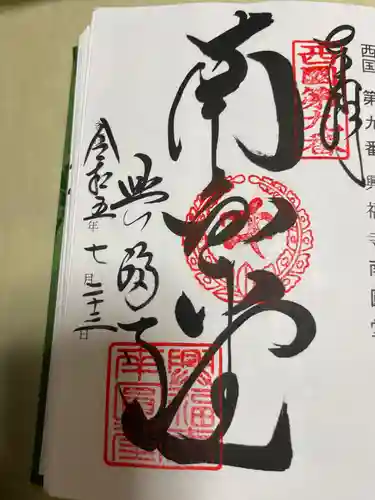 西国 第九番 興福寺南円堂
奉拝
西國第九番
南円堂
興福寺
令和五年七月二十三日
興福寺
南円堂